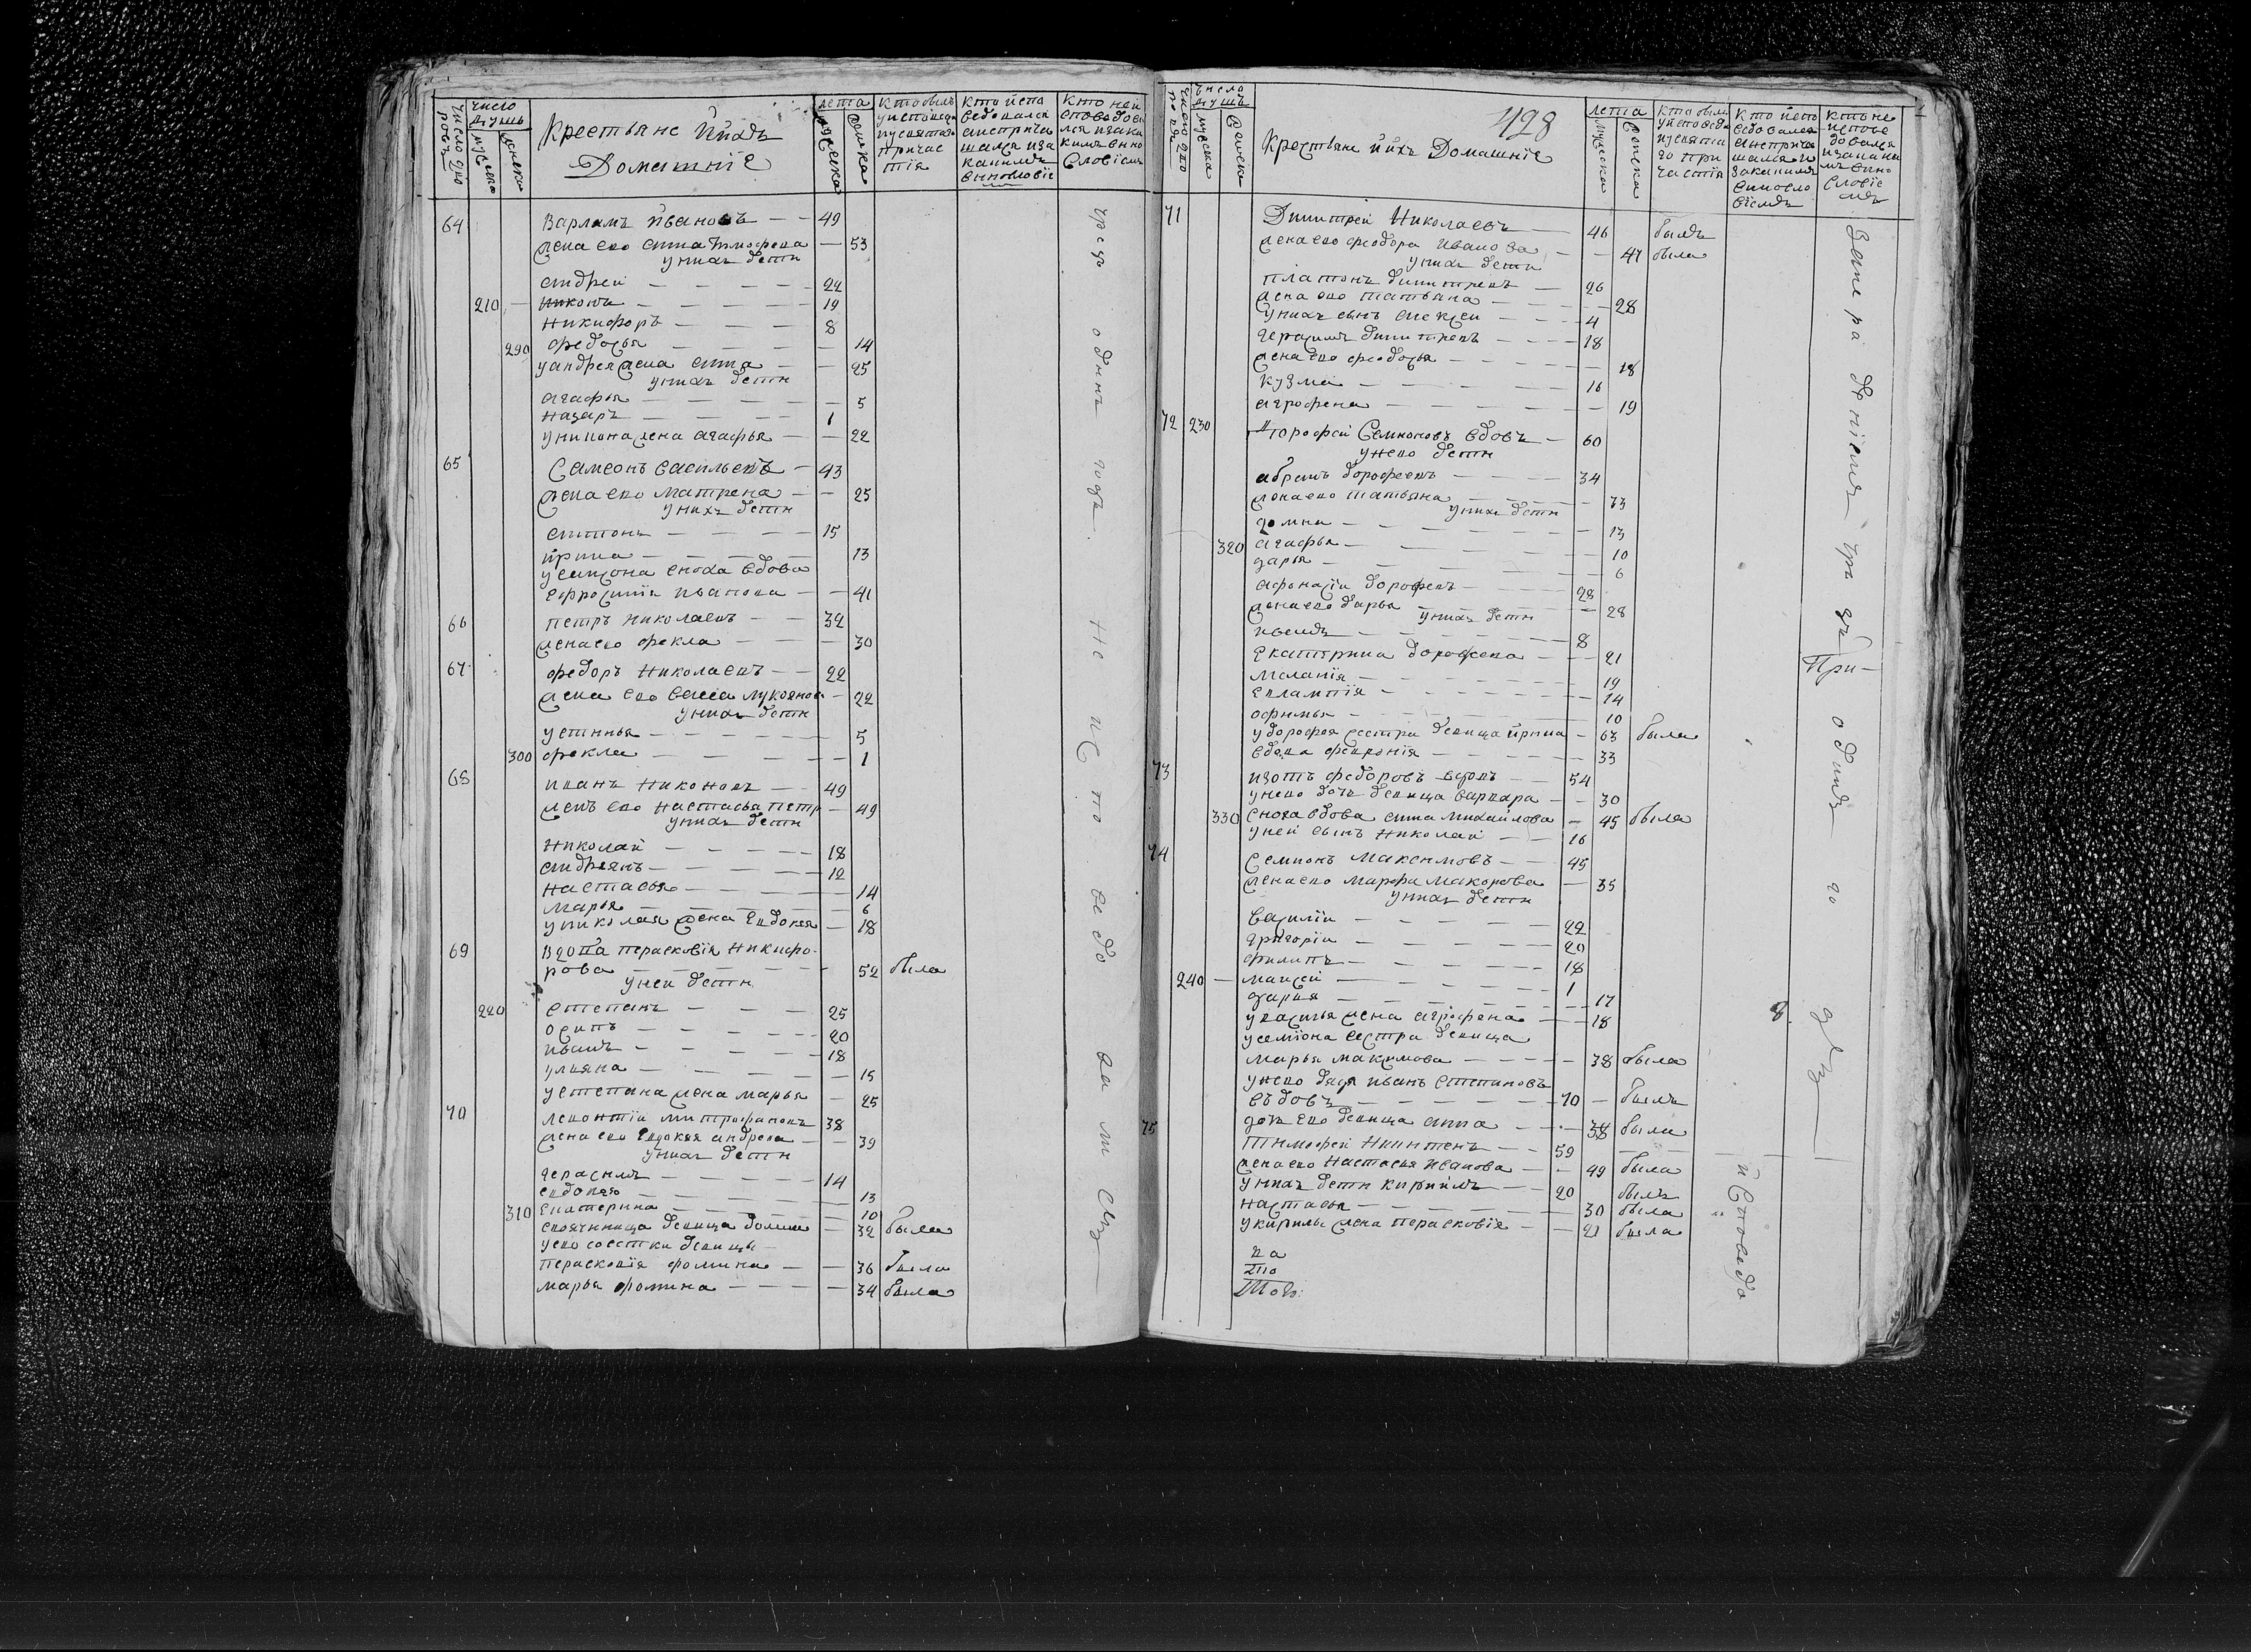 число дво
ровъ
число
душъ
мужеска
женска
Крестьяне й ихъ
Домашние
лета
мужеска
женска
кто былъ
у исповеди
и у свята
причас
тїя
кто испо
ведовался
а не прича
щался и за
какимъ
винословіе
кто не и
споведова
лся и за ка
кимъ вино
словіемъ
64 Варламъ йвановъ — — 49
жена ево анна тимофева — 53
у нихъ дети
андрей — — — — — 22
210 — никонъ — — — — — 19
никифоръ — — — — 8
290 федосья — — — — 14
у андрея жена анна — — 25
у нихъ дети
агафья — — — — — 5
назаръ — — — — 1
у никона жена агафья — — 22
65 Самсонъ васильевъ — 43
жена ево матрена — — 25
у нихъ дети
антонъ — — — — 15
ирина — — — — — 13
у самсона сноха вдова
ефросинія иванова — — 41
66 петръ николаевъ — — 32
жена ево фекла — — — 30
67 федоръ николаевъ — — 22
жена ево васса лукоянова — 22
у нихъ дети
устинья — — — — — 5
300 фекла — — — — — 1
68 иванъ никоновъ — — 49
жена ево настасья петр — 49
у нихъ дети
николай — — — — — 18
андреянъ — — — — — 12
настасья — — — — — 14
марья — — — — — 6
у николая жена евдокея — 18
69 вдова перасковія никифо-
рова — — — — — 52 была
у ней дети
220 степанъ — — — — 25
осипъ — — — — — 20
иванъ — — — — — 18
ульяна — — — — — 15
у степана жена марья — 25
70 левонтій митрофановъ 38
жена ево евдокея андреева — — 39
у нихъ дети
герасимъ — — — — — 14
евдокея — — — — — 13
310 екатерина — — — — — 10
своячиница девица домна — 32 была
у ево соестки девицы —
перасковія фомина — — 36 была
марья фомина — — — — 34 была
чрезъ одинъ годъ не исповедались
число дво
ровъ
число
душъ
мужеска
женска
428
Крестьяне й ихъ Домашніе
лета
мужеска
женска
кто былъ
у исповеди
и у свята
го при
частія
кто испо
ведовался
а не прича
щался и
за какимъ
винсло
віемъ
кто не
испове
довался
и за каки
мъ вино
словіе
мъ
71 Димитрей Николаевъ — 46 былъ
жена ево феодора иванова — — 47 была
у нихъ дети
платонъ димитревъ — 26
жена ево татьяна — — — — 28
у нихъ сынъ алексей — — — 4
герасимъ димитревъ — — — 18
жена ево феодосья — — — — — 18
кузма — — — — — 16
агрофена — — — — — — 19
72 230 дорофей Семионовъ вдовъ — 60
у нево дети
абрамъ дорофеевъ — — — — 34
жена ево татьяна — — — — 33
у нихъ дети
домна — — — — — — 13
320 агафья — — — — — — 10
дарья — — — — — — 6
афонасіи дорофевъ — — — — 28
жена ево дарья — — — — — 28
у нихъ дети
иванъ — — — — — — 8
екатирина дорофеева — — — 21
меланія — — — — — — 19
евлампія — — — — — — 14
офимья — — — — — — 10
у дорофея сестра девица ирина — 63 была
вдова февронія — — — — — 33
73 изотъ федоровъ вдовъ — — 54
у нево дочь девица варвара — — 30
330 сноха вдова анна михайлова — 45 была
у ней сынъ николай — — 16
74 Семионъ максимовъ — — 45
жена ево марфа макарова — 35
у нихъ дети
василіи — — — — — 22
григоріи — — — — — 20
филипъ — — — — — 18
240 — маисей — — — — — 1
дарья — — — — — — 17
у василья жена агрофена — — 18
у семіона сестра девица
марья максимова — — — — — 38 была
у нево дядя иванъ степановъ
въдовъ — — — — — 70 — былъ
дочь ево девица анна — — — 38 была
75 тимофей никитенъ — — 59
жена ево настасья иванова — — 49 была
у нихъ дети кирилъ — — 20 былъ
настасья — — — — — — 30 была
у кирилы жена перасковія — — 21 была
на
это